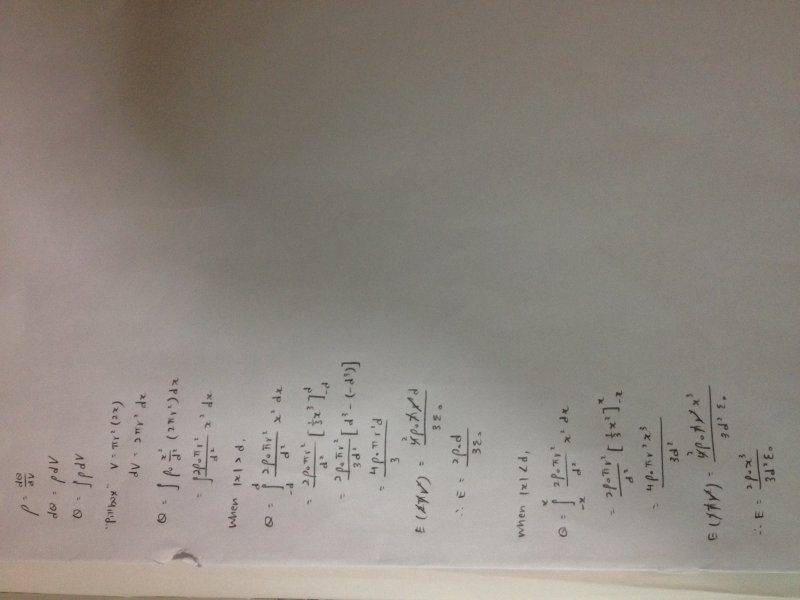 ρ = dQ/dV
dQ = ρ dV
Q = ∫ ρ dV
"Pillbox" V = πr²(2x)
dV = 2πr² dx
Q = ∫ ρ₀ x²/d² (2πr²) dx
= ∫ 2ρ₀πr²/d² x² dx
When |x| > d,
Q = ∫_{-d}^{d} 2ρ₀πr²/d² x² dx
= 2ρ₀πr²/d² [⅓x³]_{-d}^{d}
= 2ρ₀πr²/3d² [d³ - (-d³)]
= 4ρ₀πr²d/3
E(2πr²) = 4ρ₀πr²d/3ε₀
∴ E = 2ρ₀d/3ε₀
When |x| < d,
Q = ∫_{-x}^{x} 2ρ₀πr²/d² x² dx
= 2ρ₀πr²/d² [⅓x³]_{-x}^{x}
= 4ρ₀πr²x³/3d²
E(2πr²) = 4ρ₀πr²x³/3d²ε₀
∴ E = 2ρ₀x³/3d²ε₀